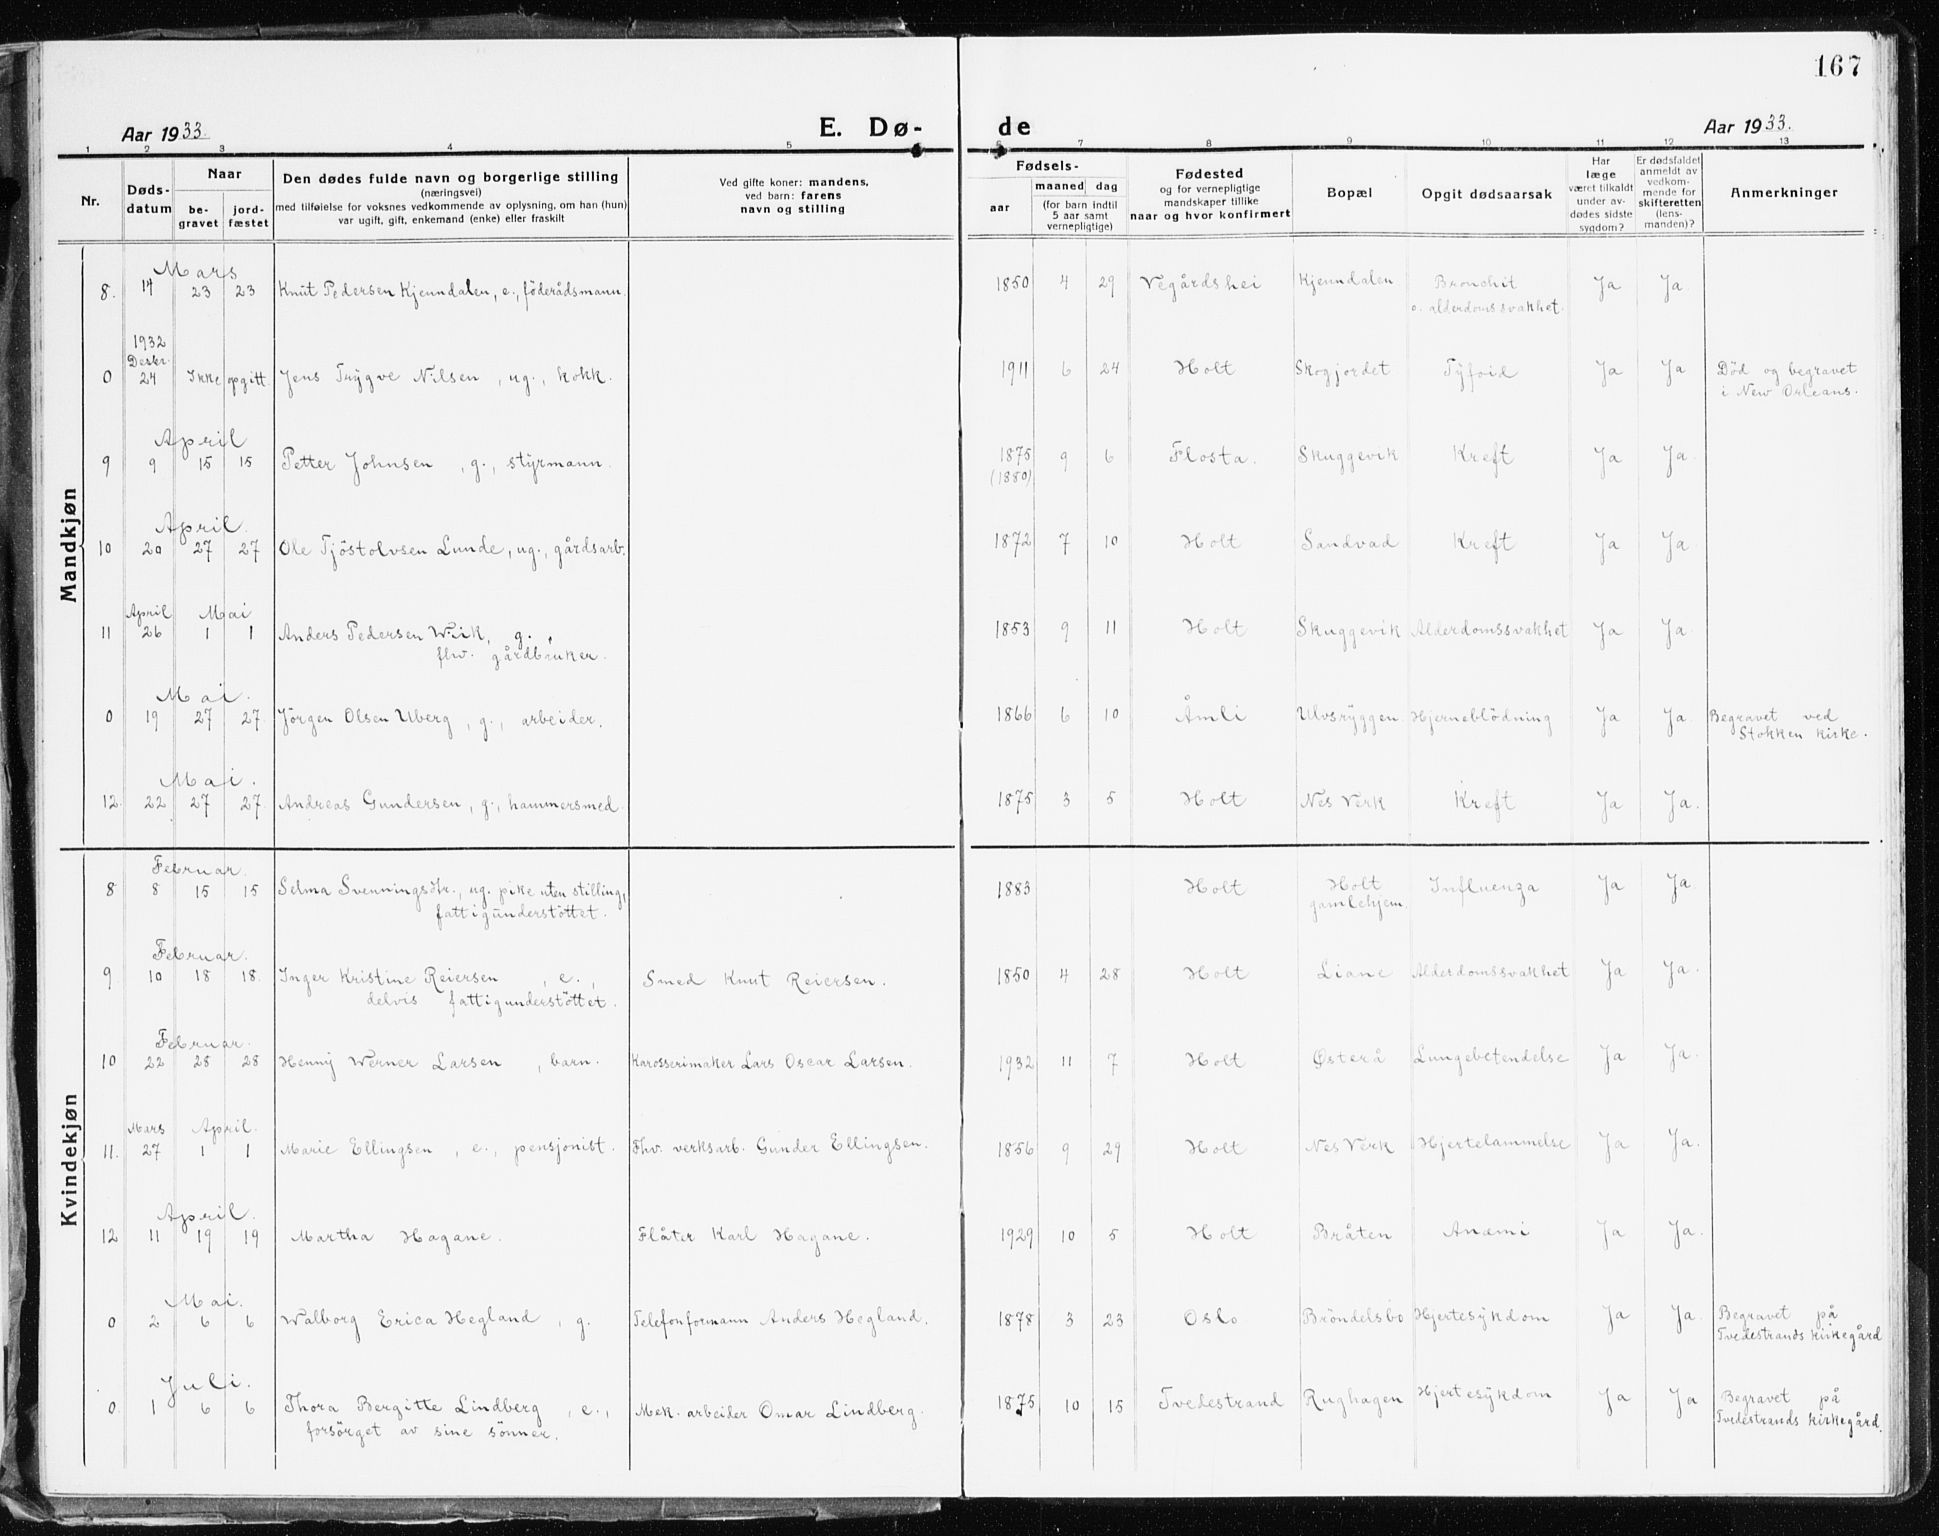 167
Aar 1933.
E. Dø-
de
Aar 1933.
1 2 3 4 5 6 7 8 9 10 11 12 13
Nr.
Døds-
datum
Naar
be-
gravet
jord-
fæstet
Den dødes fulde navn og borgerlige stilling
(næringsvei)
med tilføielse for voksnes vedkommende av oplysning, om han (hun)
var ugift, gift, enkemand (enke) eller fraskilt
Ved gifte koner: mandens,
ved barn: farens
navn og stilling
Fødsels-
aar
maaned dag
(for barn indtil
5 aar samt
vernepligtige)
Fødested
og for vernepligtige
mandskaper tillike
naar og hvor konfirmert
Bopæl
Opgit dødsaarsak
Har
læge
været tilkaldt
under av-
dødes sidste
sygdom?
Er dødsfaldet
anmeldt av
vedkom-
mende for
skifteretten
(lens-
manden)?
Anmerkninger
Mandkjøn
Mars
8. 14 23 23 Knut Pedersen Kjenndalen, e., föderådsmann. 1850 4 29 Vegårdshei Kjenndalen Bronchit Ja Ja
o. alderdomssvakhet.
1932
Desbr.
0 24 Ikke opgitt. Jens Trygve Nilsen, ug., kokk. 1911 6 24 Holt Skogjordet Tyfoid Ja Ja Död og begravet
i New Orleans.
April
9 9 15 15 Petter Johnsen, g., styrmann. 1875 9 6 Flosta. Skuggevik Kreft Ja Ja.
(1880)
April.
10 20 27 27 Ole Tjöstolvsen Lunde, ug., gårdsarb. 1872 7 10 Holt Sandvad Kreft Ja Ja.
April Mai
11 26 1 1 Anders Pedersen Wiik, g., 1853 9 11 Holt Skuggevik Alderdomssvakhet Ja Ja.
fhv. gårdbruker.
Mai.
0 19 27 27. Jörgen Olsen Uberg, g., arbeider. 1866 6 10 Åmli Ulvsryggen. Hjerneblödning Ja Ja. Begravet ved
Stokken kirke.
Mai.
12. 22 27 27. Andreas Gundersen, g., hammersmed. 1875 3 5 Holt Nes Verk Kreft Ja Ja.
Kvindekjøn
Februar.
8 8 15 15 Selma Svenningsdtr., ug. pike uten stilling, 1883 Holt Holt Influenza Ja Ja.
fattigunderstöttet. gamlehjem
Februar.
9. 10 18 18. Inger Kristine Reiersen, e., Smed Knut Reiersen. 1850 4 28 Holt Liane Alderdomssvakhet Ja Ja.
delvis fattigunderstöttet.
Februar.
10 22 28 28 Henny Werner Larsen, barn. Karosserimaker Lars Oscar Larsen. 1932 11 7 Holt Østerå Lungebetendelse Ja Ja.
Mars April.
11. 27 1 1 Marie Ellingsen, e., pensjonist. Fhv. verksarb. Gunder Ellingsen. 1856 9 29 Holt Nes Verk Hjertelammelse Ja Ja.
April.
12 11 19 19 Martha Hagane. Flåter Karl Hagane. 1929 10 5 Holt Bråten Anæmi Ja Ja.
Mai.
0 2 6 6 Walborg Erica Hegland, g. Telefonformann Anders Hegland. 1878 3 23 Oslo Bröndelsbo Hjertesykdom Ja Ja. Begravet på
Tvedestrands kirkegård
Juli.
0. 1 6 6 Thora Bergitte Lindberg, e., Mek. arbeider Omar Lindberg. 1875 10 15 Tvedestrand Rughagen Hjertesykdom Ja Ja Begravet på
forsörget av sine sönner. Tvedestrands kirkegård.